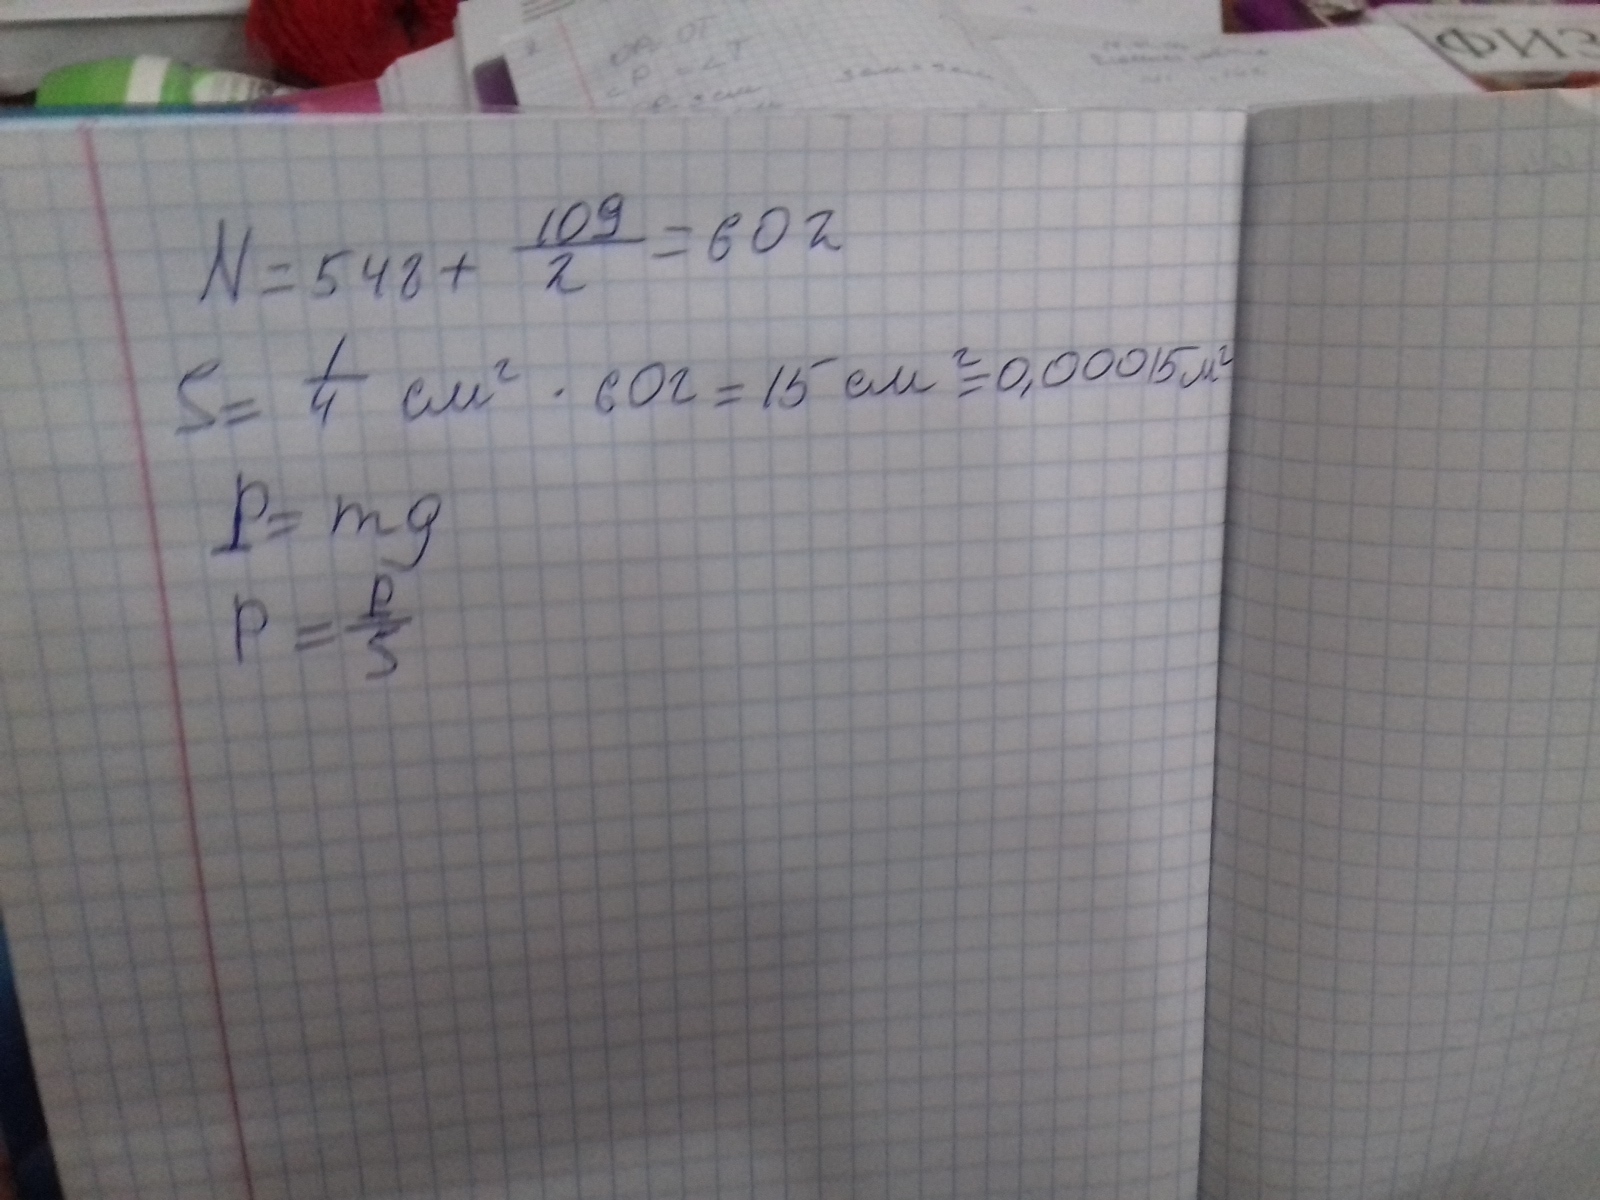 ФИЗ
N = 548 + 109/2 = 602
S = 1/4 см² · 602 = 15 см² = 0,00015м²
P = mg
P = P/S